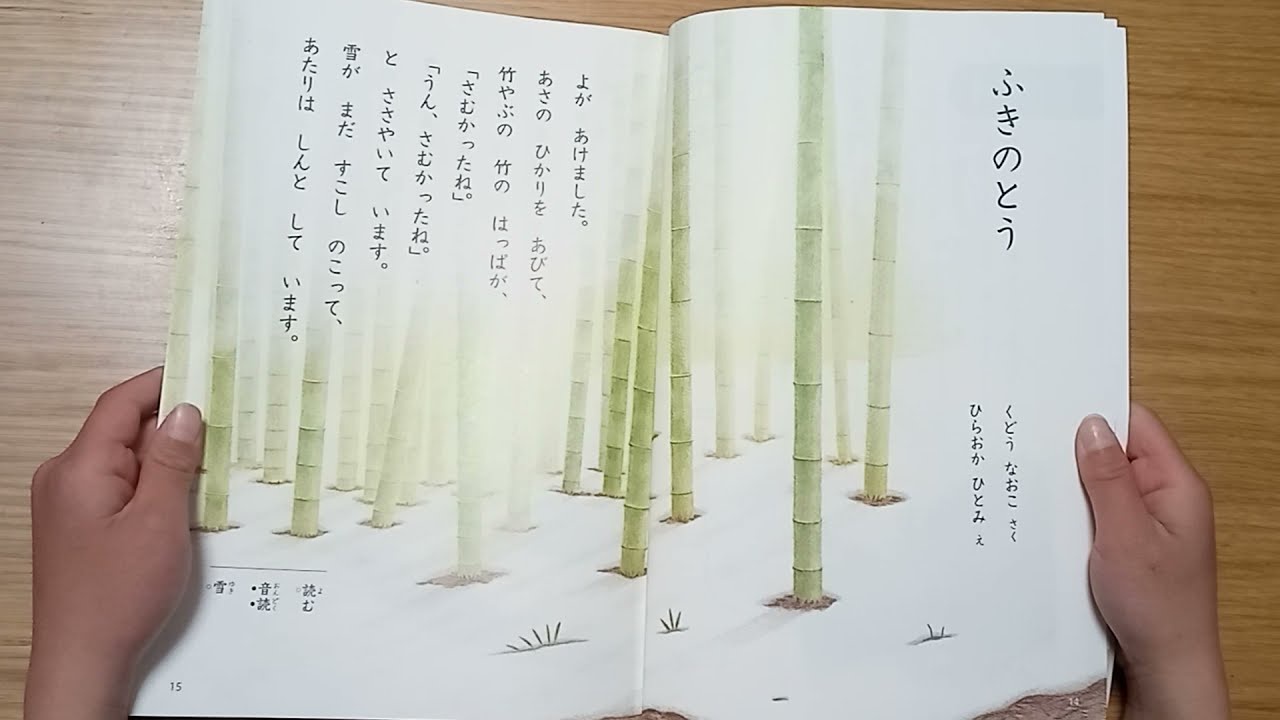 ふきのとう
くどう なおこ さく
ひらおか ひとみ え
よが あけました。
あさの ひかりを あびて、
竹やぶの 竹の はっぱが、
「さむかったね。」
「うん、さむかったね。」
と ささやいて います。
雪が まだ すこし のこって、
あたりは しんと して います。
○読む
よ
●音●読
おんどく
○雪
ゆき
15
14